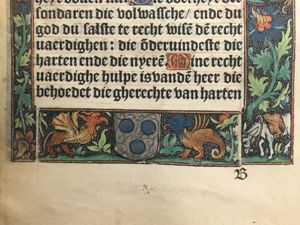 fondaren die volwassche/ ende du
god du salste te recht wisē dē recht
uaerdighen: die ōderuindeste die
harten ende die nyerē Mine recht
uaerdighe hulpe is vandē heer die
behoedet die gherechte van harten
B